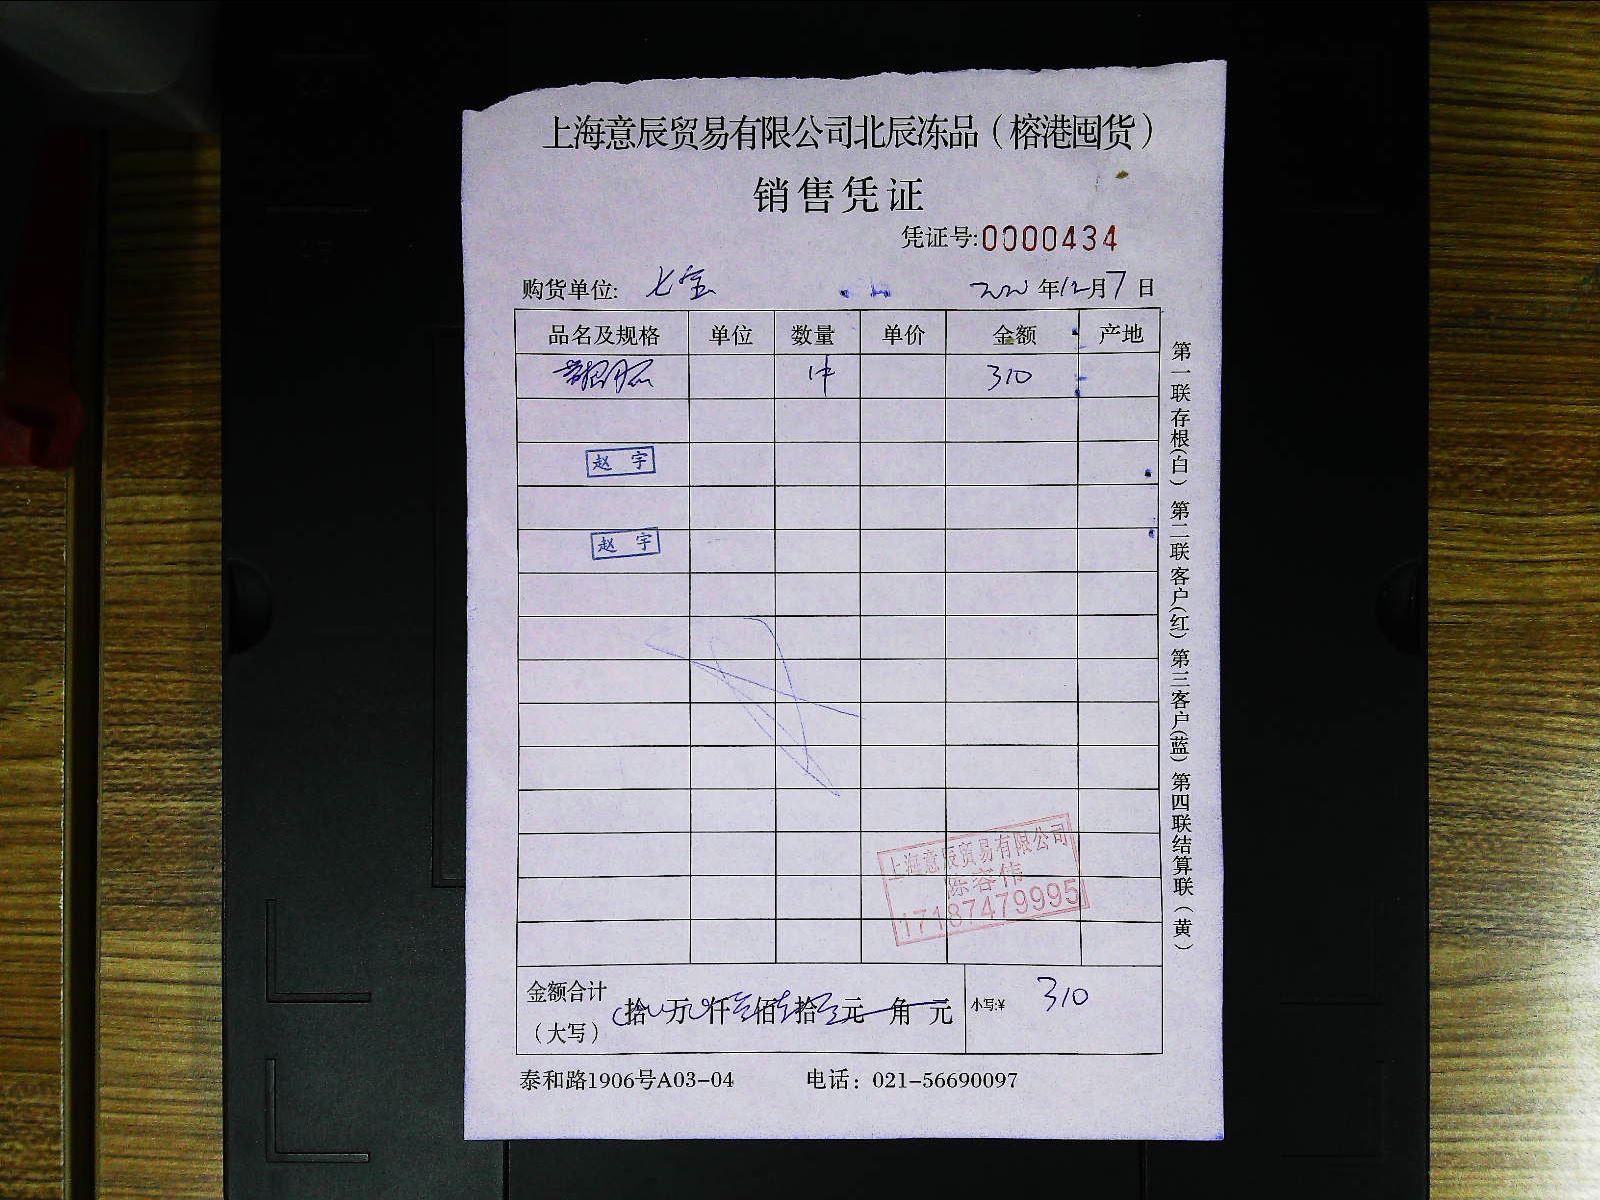 上海意辰贸易有限公司北辰冻品（榕港囤货）
销售凭证
凭证号:0000434
购货单位: 七宝 年12月7日
品名及规格 单位 数量 单价 金额 产地
1件 310
赵 宇
赵 宇
上海意辰贸易有限公司
陈容伟
17187479995
金额合计（大写） 拾 万 仟 佰 拾 元 角 元 小写:¥ 310
泰和路1906号A03-04 电话：021-56690097
第一联存根(白) 第二联客户(红) 第三客户(蓝) 第四联结算联（黄）